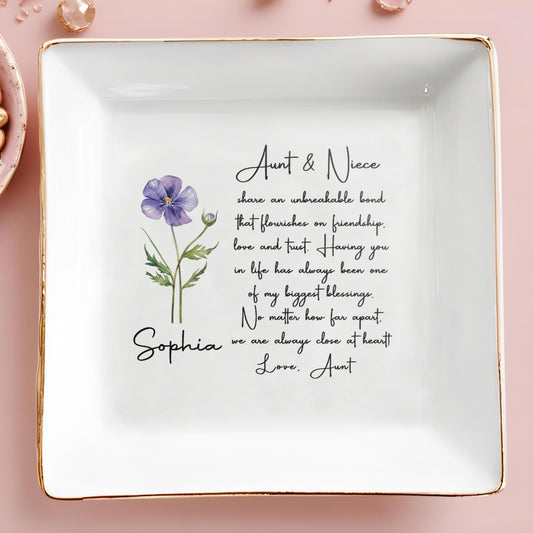 Aunt & Niece
share an unbreakable bond
that flourishes on friendship,
love and trust. Having you
in life has always been one
of my biggest blessings.
No matter how far apart,
we are always close at heart!
Love, Aunt
Sophia